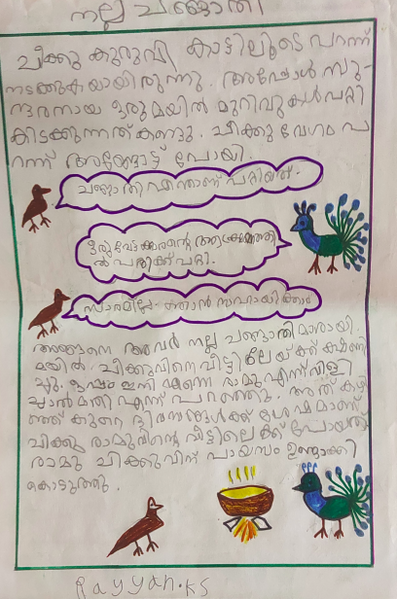 നല്ല ചങ്ങാതി
ചിക്കു കുരുവി കാട്ടിലൂടെ പറന്ന്
നടക്കുകയായിരുന്നു. അപ്പോൾ സു-
ന്ദരനായ ഒരു മയിൽ മുറിവുകൾ പറ്റി
കിടക്കുന്നത് കണ്ടു. ചിക്കു വേഗം പ
റന്ന് അങ്ങോട്ട് പോയി.
ചങ്ങാതി എന്താണ് പറ്റിയത്.
ഒരു വേട്ടക്കാരന്റെ ആക്രമത്തി
ൽ പരിക്ക് പറ്റി.
സാരമില്ല ഞാൻ സഹായിക്കാം
അങ്ങനെ അവർ നല്ല ചങ്ങാതിമാരായി.
മയിൽ ചിക്കുവിനെ വീട്ടിലേയ്ക്ക് ക്ഷണി
ച്ചു. ഇനി എന്നെ രാമു എന്ന് വിളി
ച്ചാൽ മതി എന്ന് പറഞ്ഞു. അത് കഴി
ഞ്ഞ് കുറെ ദിവസങ്ങൾക്ക് ശേഷമാണ്
ചിക്കു രാമുവിന്റെ വീട്ടിലെക്ക് പോയത്
രാമു ചിക്കുവിന് പായസം ഉണ്ടാക്കി
കൊടുത്തു.
Rayyan.KS